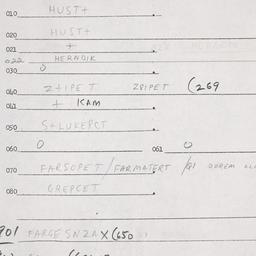 010 HUST+
020 HUST+
021 +
022 HERNDIK
030 O
040 Z+IPET Z8IPET (269
041 + KAM
050 S+LUKEPCT
060 O 061 O
070 FARSOPET/FARMATERT/
080 GREPCET
901 FARGESNZAX(650